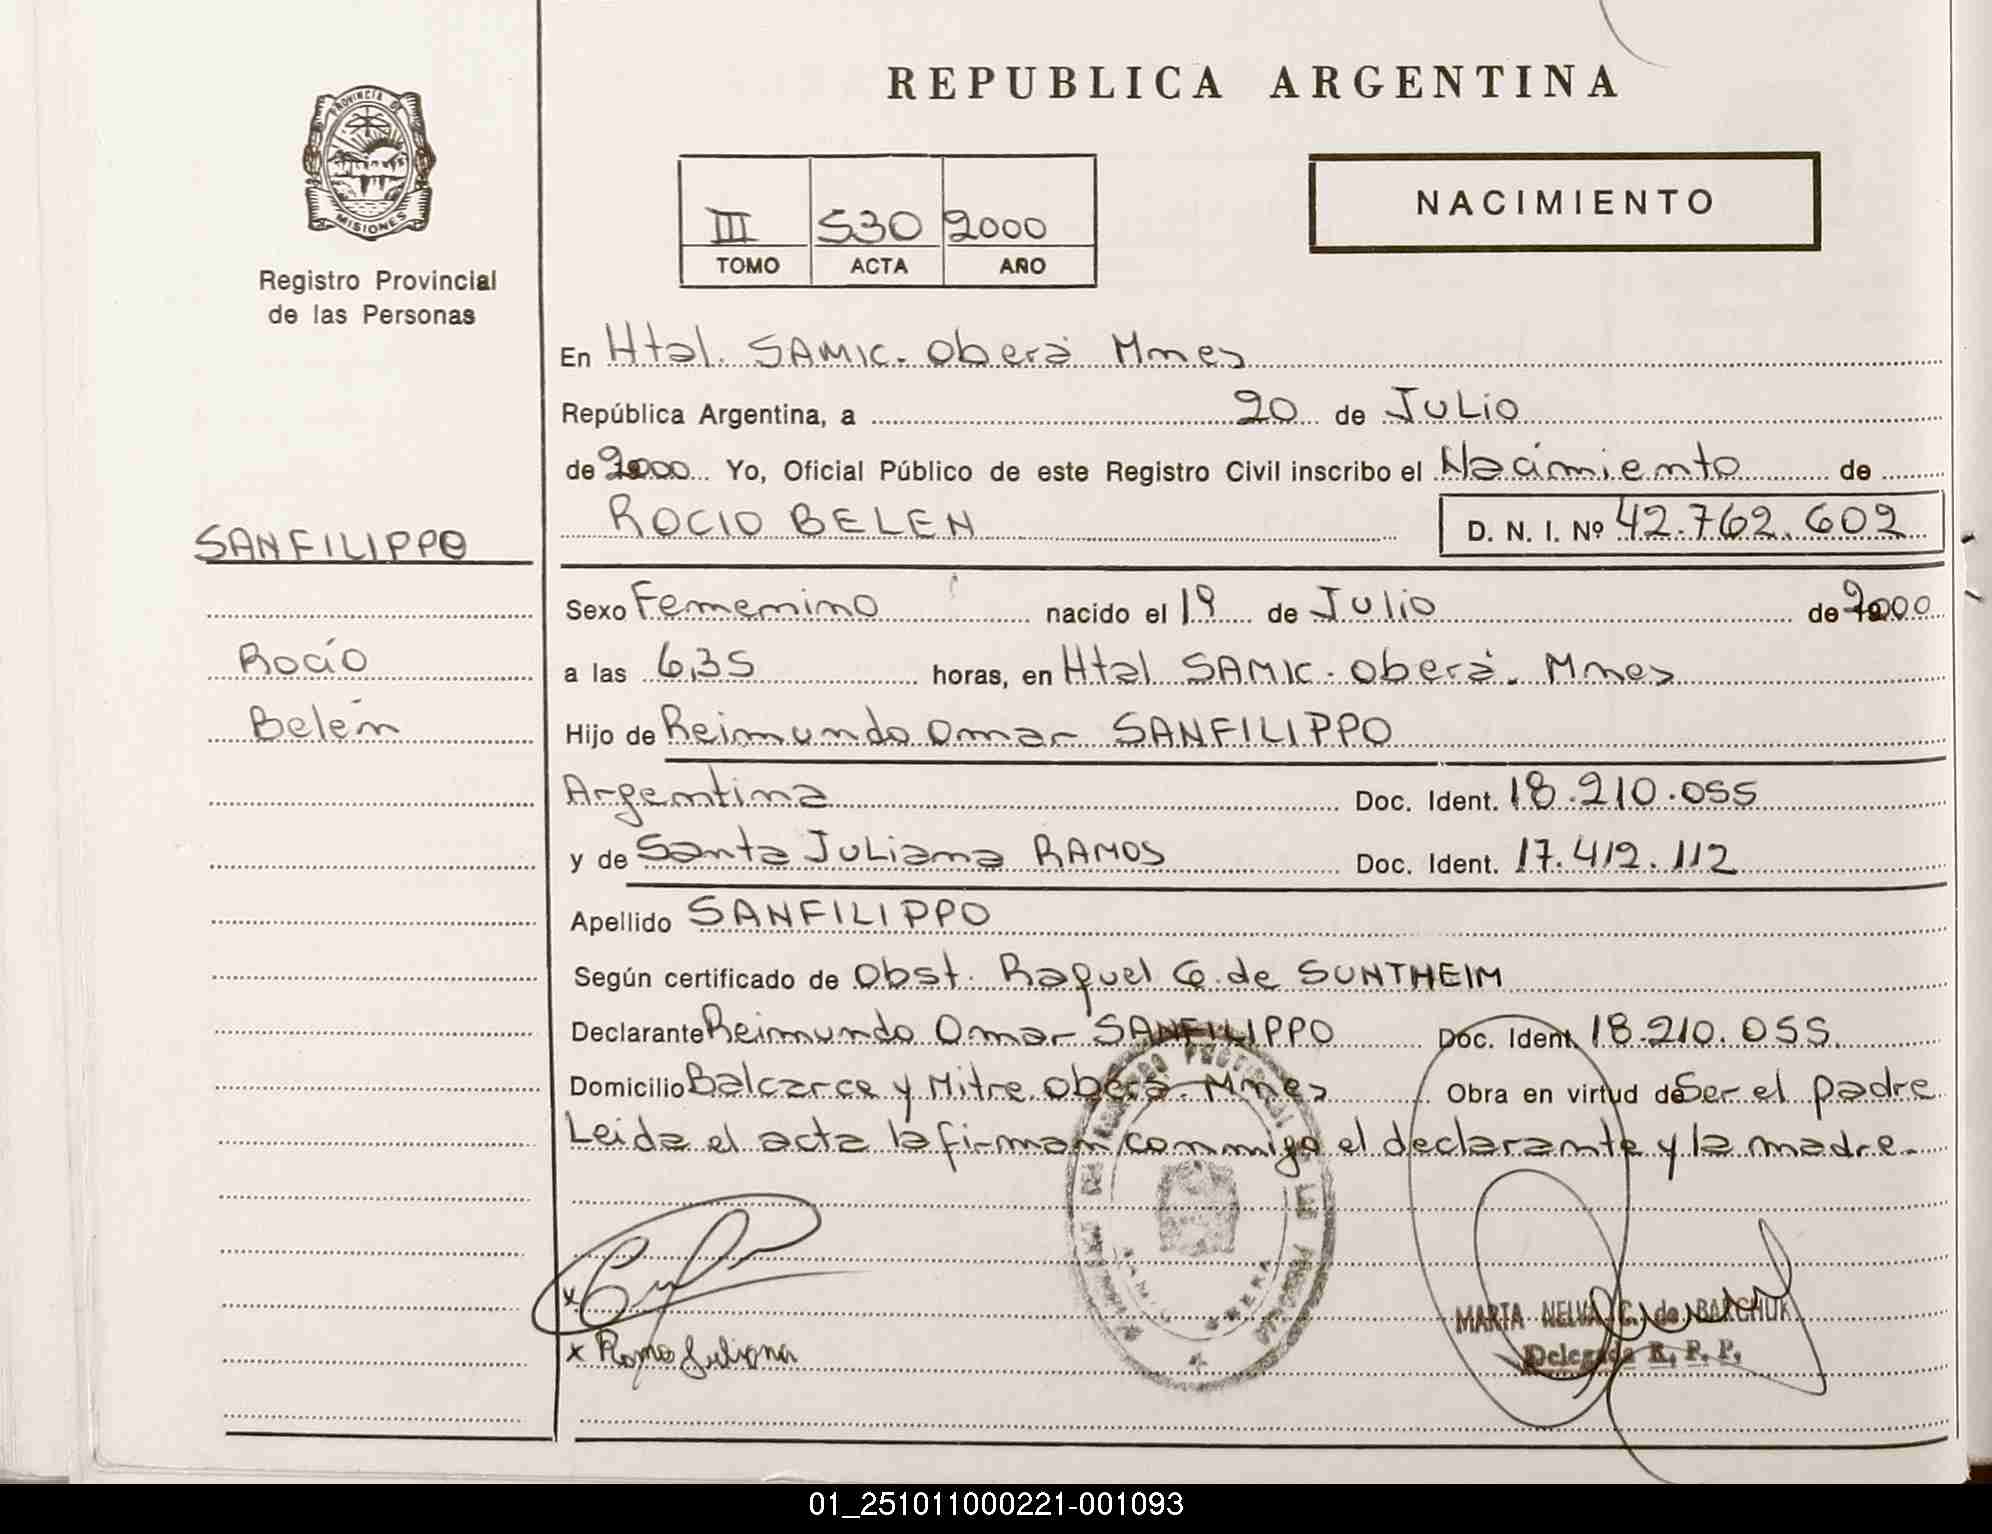 REPUBLICA ARGENTINA
PROVINCIA DE
MISIONES
Registro Provincial
de las Personas
III 530 2000
TOMO ACTA AÑO
NACIMIENTO
En Htal. SAMIC. Oberá Mnes
República Argentina, a 20 de Julio
de 2000 Yo, Oficial Público de este Registro Civil inscribo el Nacimiento de
ROCIO BELEN D. N. I. Nº 42.762.602
SANFILIPPO
Rocío
Belén
Sexo Femenino nacido el 19 de Julio de 2000
a las 6,35 horas, en Htal SAMIC. Oberá. Mnes
Hijo de Reimundo Omar SANFILIPPO
Argentina Doc. Ident. 18.210.055
y de Santa Juliana RAMOS Doc. Ident. 17.412.112
Apellido SANFILIPPO
Según certificado de Obst. Raquel G. de SUNTHEIM
Declarante Reimundo Omar SANFILIPPO Doc. Ident. 18.210.055.
Domicilio Balcarce y Mitre. Oberá. Mnes Obra en virtud de Ser el padre
Leida el acta la firman conmigo el declarante y la madre.
x
x Ramo Juliana
MARTA NELVA C. de BARCHUK
Delegada R. P. P.
01_251011000221-001093